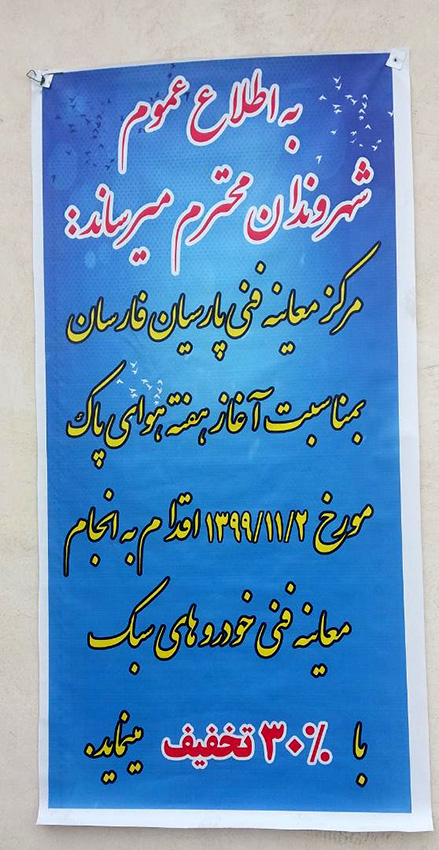 به اطلاع عموم
شهروندان محترم میرساند:
مرکز معاینه فنی پارسیان فارسان
بمناسبت آغاز هفته هوای پاک
مورخ ۱۳۹۹/۱۱/۲ اقدام به انجام
معاینه فنی خودروهای سبک
با ۳۰٪ تخفیف مینماید.